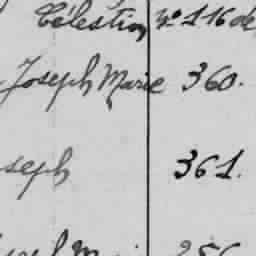 Célestin nº 116 de
Joseph Marie 360.
seph 361.